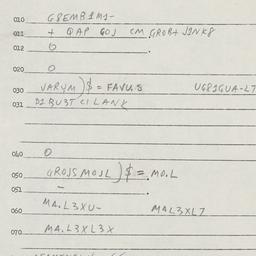 010 G8EMB1M1-
011 + QAP GOJ CM GROR+ J1NK8
012 0
020 0
030 VARYM)$ = FAVU.S UG81GUA-L7
031 D1BU3T C1LANK
040 0
050 GROJS MOJL)$ = MO.L
051 -
060 MA.L3XU- MAL3XL7
070 MA.L3XL3X